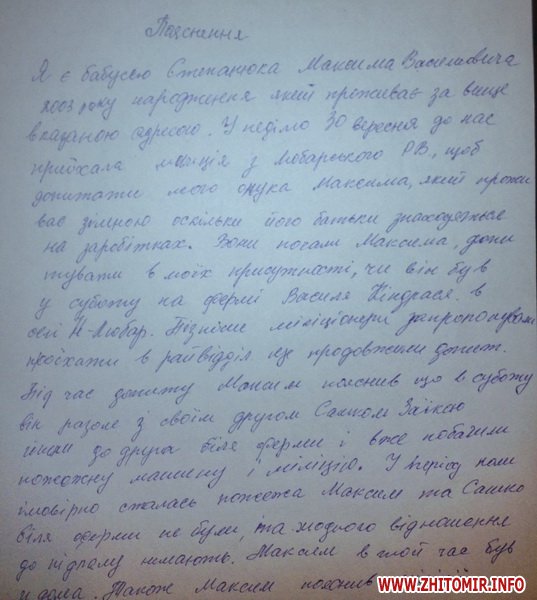 Пояснення
Я є бабусею Степанюка Максима Васильовича
2003 року народження який проживає за вище
вказаною адресою. У неділю 30 вересня до нас
приїхала міліція з Любарського РВ, щоб
допитати мого онука Максима, який прожи
ває зімною оскільки його батьки знаходяться
на заробітках. Вони почали Максима, допи
тувати в моїх присутності, чи він був
у суботу на фермі Василя Кіндрася в
селі Н-Любар. Пізніше міліціонери запропонували
проїхати в райвідділ де продовжили допит.
Під час допиту Максим пояснив що в суботу
він разом з своїм другом Сашком Заїкою
йшли до друга біля ферми і вже побачили
пожежну машину і міліцію. У період коли
імовірно сталась пожежа Максим та Сашко
біля ферми не були, та жодного відношення
до підпалу немають. Максим в той час був
вдома. Також Максим пояснив
WWW.ZHITOMIR.INFO